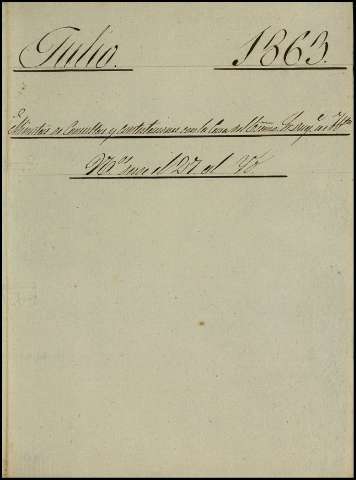 Julio. 1863.
Minutas de Consultas y Contestaciones con la Casa del Exmo.
Nos. desde el 27 al